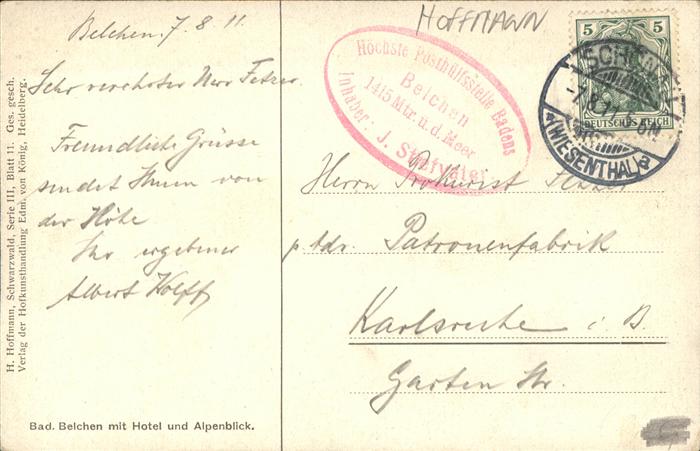 Belchen, 7. 8. 11.
Sehr verehrter Herr Fetzer
Freundliche Grüsse
sendet Ihnen von
der Höhe
Ihr ergebener
Albert Wolff
Bad. Belchen mit Hotel und Alpenblick.
H. Hoffmann, Schwarzwald, Serie III, Blatt 11. Ges. gesch.
Verlag der Hofkunsthandlung Edm. von König, Heidelberg.
HOFFMANN
Höchste Posthülfsstelle Badens
Belchen
1415 Mtr. ü. d. Meer
Inhaber: J. Stiefvater
5 5
DEUTSCHES REICH
SCHÖNAU
(WIESENTHAL)
Herrn Prokurist
p. Adr. Patronenfabrik
Karlsruhe i. B.
Garten Str.